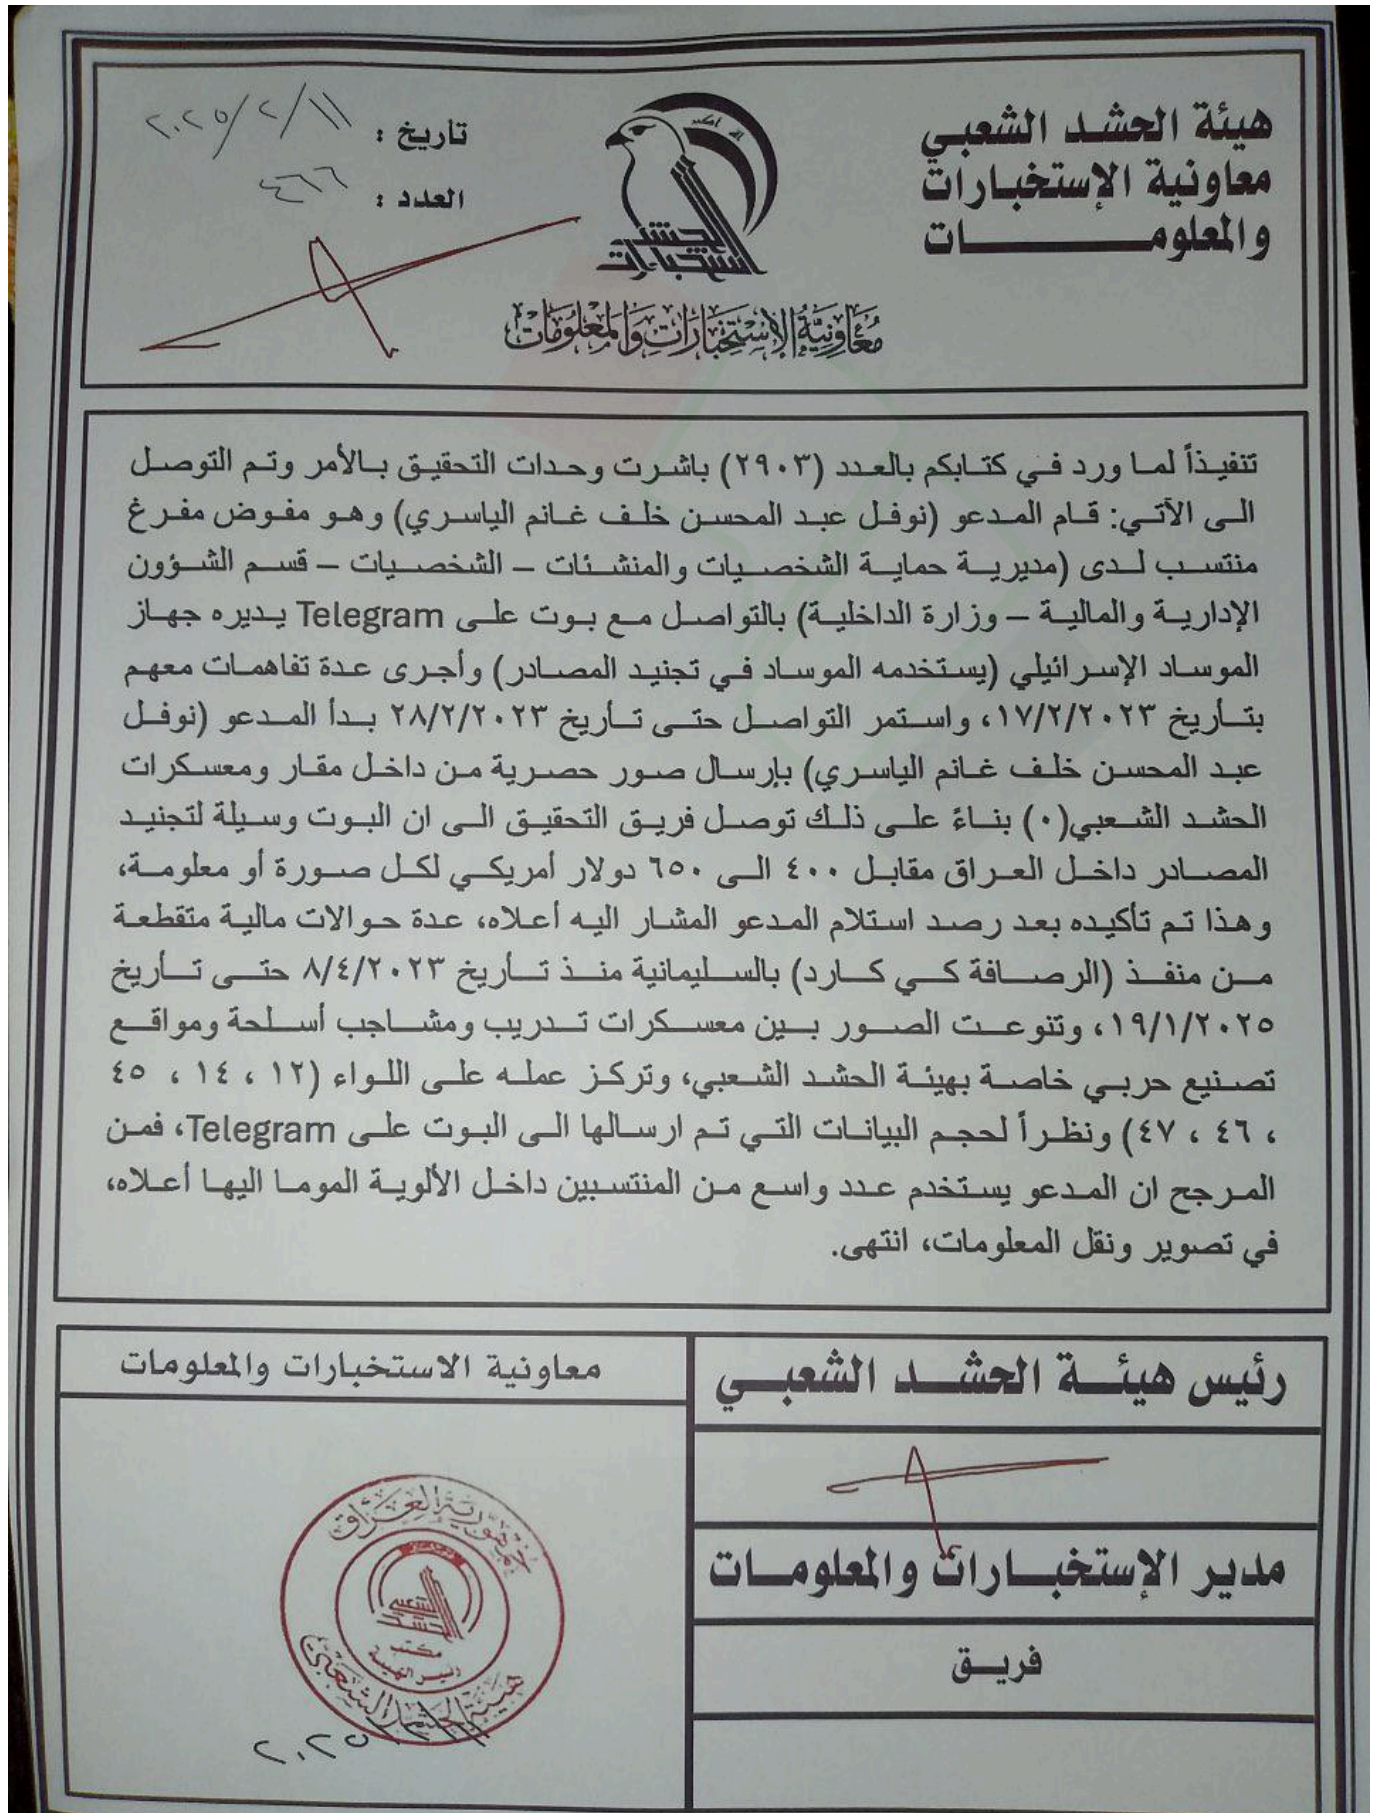 هيئة الحشد الشعبي
معاونية الإستخبارات
والمعلومات
تاريخ : ٢٠٢٥/٢/١١
العدد : ٤٦٦
الله اكبر
الحشد
استخبارات
مُعَاوِنِيَّةُ الاِسْتِخْبَارَاتِ وَالمَعْلُومَاتِ
تنفيذاً لما ورد في كتابكم بالعدد (٢٩٠٣) باشرت وحدات التحقيق بالأمر وتم التوصل
الى الآتي: قام المدعو (نوفل عبد المحسن خلف غانم الياسري) وهو مفوض مفرغ
منتسب لدى (مديرية حماية الشخصيات والمنشئات – الشخصيات – قسم الشؤون
الإدارية والمالية – وزارة الداخلية) بالتواصل مع بوت على Telegram يديره جهاز
الموساد الإسرائيلي (يستخدمه الموساد في تجنيد المصادر) وأجرى عدة تفاهمات معهم
بتأريخ ١٧/٢/٢٠٢٣، واستمر التواصل حتى تأريخ ٢٨/٢/٢٠٢٣ بدأ المدعو (نوفل
عبد المحسن خلف غانم الياسري) بإرسال صور حصرية من داخل مقار ومعسكرات
الحشد الشعبي(٠) بناءً على ذلك توصل فريق التحقيق الى ان البوت وسيلة لتجنيد
المصادر داخل العراق مقابل ٤٠٠ الى ٦٥٠ دولار أمريكي لكل صورة أو معلومة،
وهذا تم تأكيده بعد رصد استلام المدعو المشار اليه أعلاه، عدة حوالات مالية متقطعة
من منفذ (الرصافة كي كارد) بالسليمانية منذ تأريخ ٨/٤/٢٠٢٣ حتى تأريخ
١٩/١/٢٠٢٥، وتنوعت الصور بين معسكرات تدريب ومشاجب أسلحة ومواقع
تصنيع حربي خاصة بهيئة الحشد الشعبي، وتركز عمله على اللواء (١٢ ، ١٤ ، ٤٥
، ٤٦ ، ٤٧) ونظراً لحجم البيانات التي تم ارسالها الى البوت على Telegram، فمن
المرجح ان المدعو يستخدم عدد واسع من المنتسبين داخل الألوية الموما اليها أعلاه،
في تصوير ونقل المعلومات، انتهى.
رئيس هيئة الحشد الشعبي
مدير الإستخبارات والمعلومات
فريق
معاونية الاستخبارات والمعلومات
جمهورية العراق
الحشد الشعبي
مكتب
رئيس الهيئة
هيئة الحشد الشعبي
٢٠٢٥